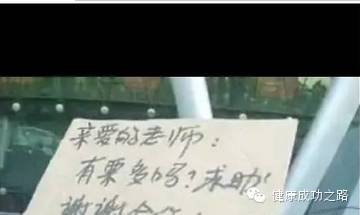 亲爱的老师：
有票多吗？求助！
谢谢
健康成功之路